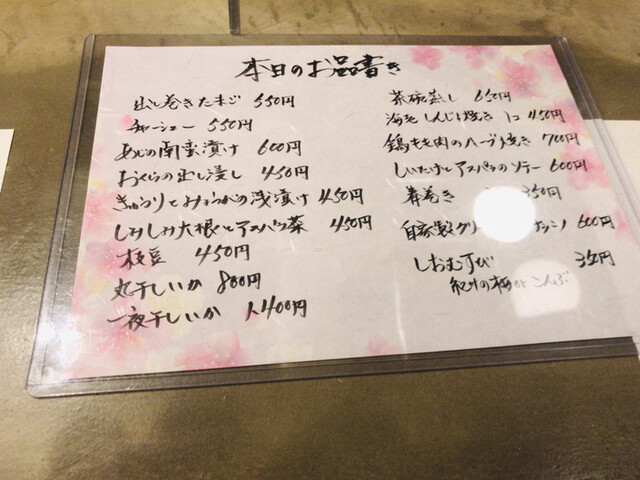 本日のお品書き
出し巻きたまご 550円
チャーシュー 550円
あじの南蛮漬け 600円
おくらの出し浸し 450円
きゅうりとみょうがの浅漬け 450円
しみしみ大根とアスパラ菜 450円
枝豆 450円
丸干しいか 800円
一夜干しいか 1,400円
茶碗蒸し 650円
海老しんじょ焼き 1コ 450円
鶏もも肉のハーブ焼き 700円
しいたけとアスパラのソテー 600円
春巻き 350円
自家製クリー 600円
しおむすび 円
紀州の梅orこんぶ